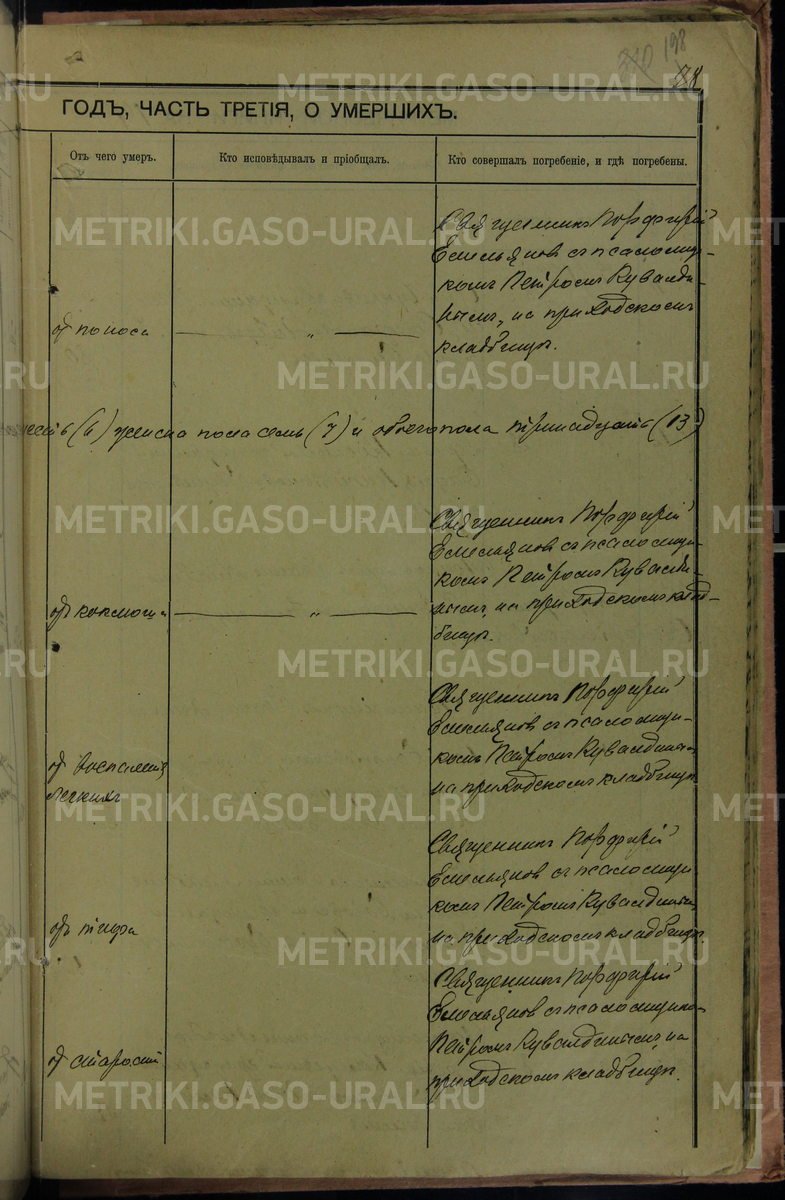 310 198
38
ГОДЪ, ЧАСТЬ ТРЕТІЯ, О УМЕРШИХЪ.
Отъ чего умеръ.
Кто исповѣдывалъ и пріобщалъ.
Кто совершалъ погребеніе, и гдѣ погребены.
отъ поноса
— „ —
Священникъ Порфирій
Емельяновъ съ псаломщи-
комъ Петромъ Кувалди-
нымъ, на приходскомъ
кладбищѣ.
шесть (6) женска пола семь (7) и обоего пола тринадцать (13)
— „ —
Священникъ Порфирій
Емельяновъ съ псаломщи-
комъ Петромъ Кувалди-
нымъ, на приходскомъ клад-
бищѣ.
отъ воспаленія
легкихъ
Священникъ Порфирій
Емельяновъ съ псаломщи-
комъ Петромъ Кувалдинымъ
на приходскомъ кладбищѣ.
отъ тифа
Священникъ Порфирій
Емельяновъ съ псаломщи-
комъ Петромъ Кувалдинымъ,
на приходскомъ кладбищѣ.
отъ старости
Священникъ Порфирій
Емельяновъ съ псаломщико-
Петромъ Кувалдинымъ, на
приходскомъ кладбищѣ.
METRIKI.GASO-URAL.RU